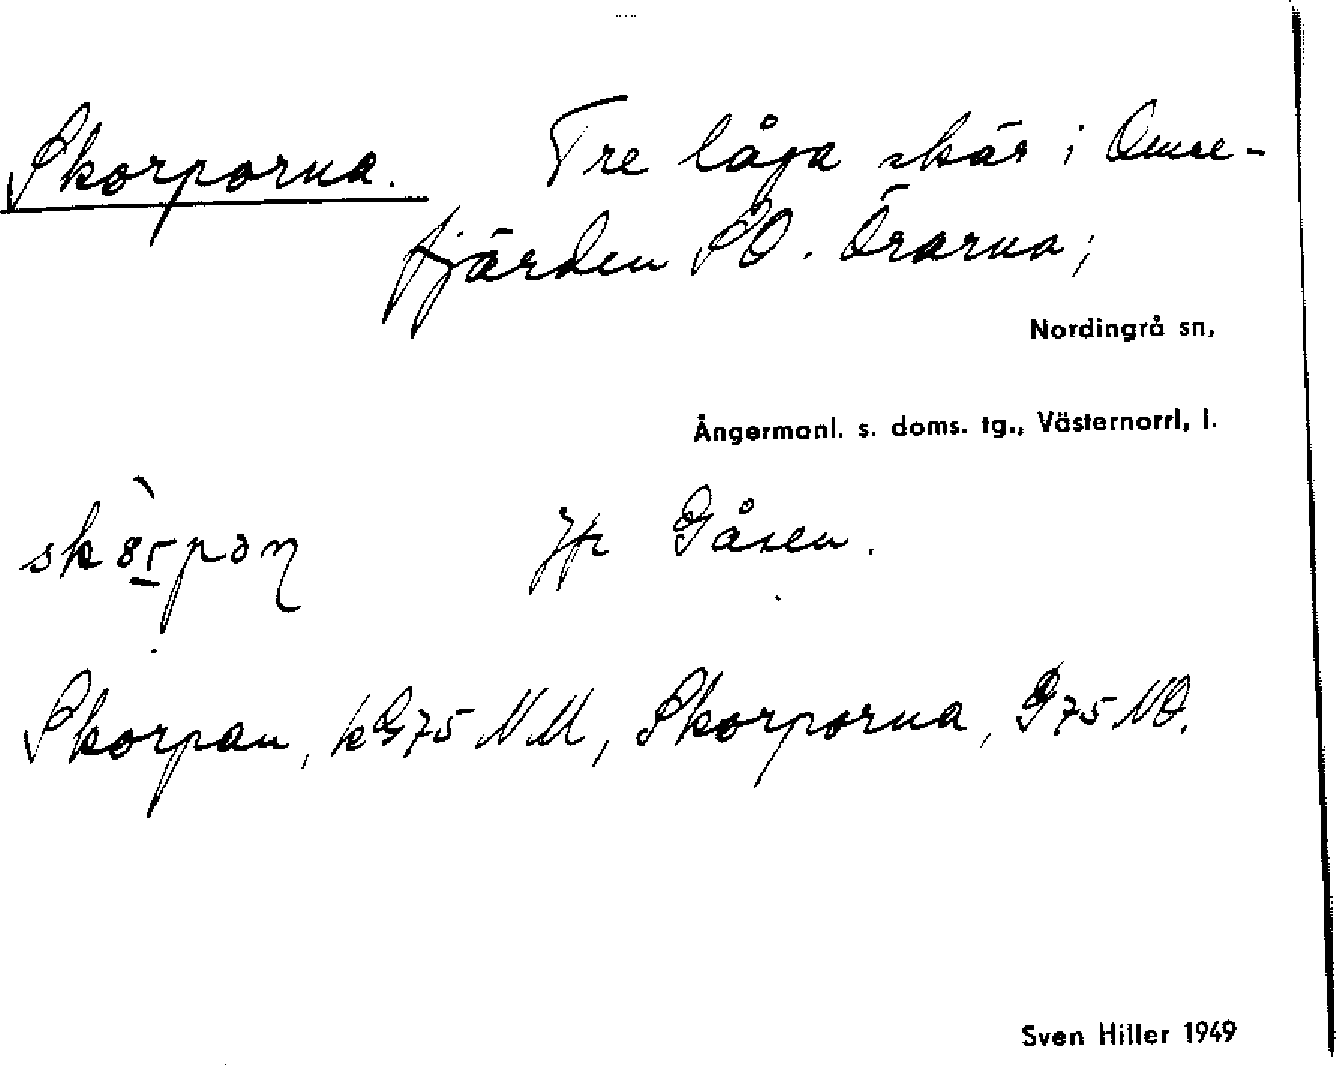 Skorporna. Tre låga skär i Omne-
fjärden SO. Örarna;
Nordingrå sn,
Ångermanl. s. doms. tg., Västernorrl, l.
Jfr Gåsen.
Skorpan, kG75 NM, Skorporna, G75 NO.
Sven Hiller 1949